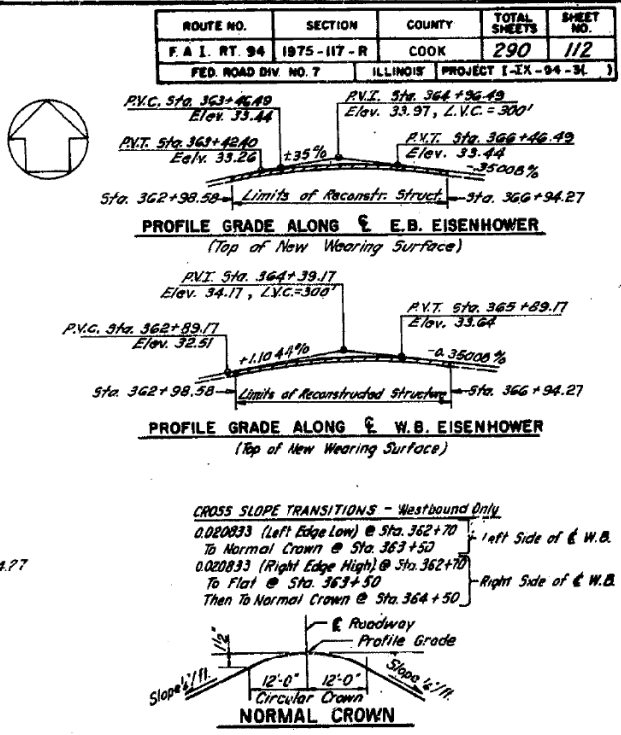 ROUTE NO. SECTION COUNTY TOTAL SHEETS SHEET NO.
F. A I. RT. 94 1975-117-R COOK 290 112
FED. ROAD DIV. NO. 7 ILLINOIS PROJECT I-IX-94-3( )
P.V.C. Sta. 363+46.49
Elev. 33.44
P.V.I. Sta. 364+96.49
Elev. 33.97, L.V.C.=300'
P.V.T. Sta. 363+42.40
Eelv. 33.26
+.35%
P.V.T. Sta. 366+46.49
Elev. 33.44
-.35008%
Sta. 362+98.58 Limits of Reconstr. Struct. Sta. 366+94.27
PROFILE GRADE ALONG ℄ E.B. EISENHOWER
(Top of New Wearing Surface)
P.V.I. Sta. 364+39.17
Elev. 34.17, L.V.C.=300'
P.V.T. Sta. 365+89.17
Elev. 33.64
P.V.C. Sta. 362+89.17
Elev. 32.51
+1.1044% -0.35008%
Sta. 362+98.58 Limits of Reconstructed Structure Sta. 366+94.27
PROFILE GRADE ALONG ℄ W.B. EISENHOWER
(Top of New Wearing Surface)
CROSS SLOPE TRANSITIONS - Westbound Only
0.020833 (Left Edge Low) @ Sta. 362+70
To Normal Crown @ Sta. 363+50
Left Side of ℄ W.B.
4.27
0.020833 (Right Edge High) @ Sta. 362+70
To Flat @ Sta. 363+50
Then To Normal Crown @ Sta. 364+50
Right Side of ℄ W.B.
℄ Roadway
Profile Grade
1½"
Slope ¼"/ft. 12'-0" 12'-0" Slope ¼"/ft.
Circular Crown
NORMAL CROWN